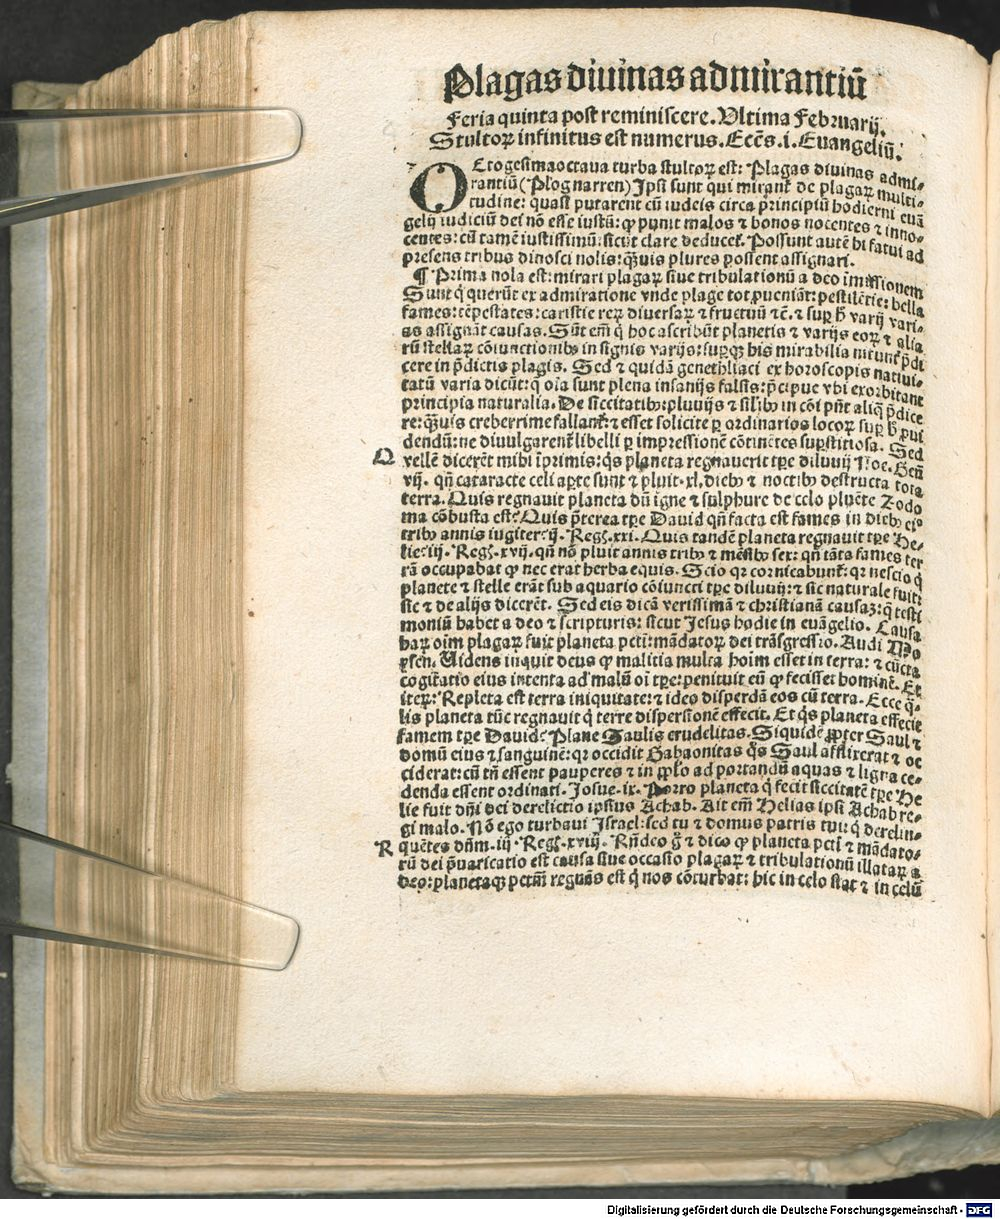 Plagas diuinas admirantiū
Feria quinta post reminiscere. Vltima Februarij.
Stultoꝝ infinitus est numerus. Eccēs. i. Euangeliū.
OCtogesimaoctaua turba stultoꝝ est: Plagas diuinas admi-
rantiū (Plog narren) Ipsi sunt qui mirant̄ de plagaꝝ multi-
tudine: quasi putarent cū iudeis circa principiū hodierni euā
gelij iudiciū dei nō esse iustū: ꝙ punit malos ⁊ bonos nocentes ⁊ inno-
centes: cū tamē iustissimū: sicut clare deducet̄. Possunt autē hi fatui ad
presens tribus dinosci nolis: q̄uis plures possent assignari.
¶ Prima nola est: mirari plagaꝝ siue tribulationū a deo īmissionem
Sunt q̇ querūt ex admiratione vnde plage tot ꝓueniāt: pestilētie: bella
fames: tēpestates: caristie reꝝ diuersaꝝ ⁊ fructuū ⁊c̄. ⁊ suꝑ ħ varij vari-
as assignāt causas. Sūt em̄ q̇ hoc ascribūt planetis ⁊ varijs eoꝝ ⁊ alia
rū stellaꝝ cōiunctionibꝰ in signis varijs: suꝑqꝫ his mirabilia nitunt̄ p̄di
cere in p̄dictis plagis. Sed ⁊ quidā genethliaci ex horoscopis natiui-
tatū varia dicūt: q̄ oīa sunt plena insanijs falsis: p̄cipue vbi exorbitant
principia naturalia. De siccitatibꝰ: pluuijs ⁊ silibꝰ in cōi pn̄t aliq̄ p̄dice
re: q̄uis creberrime fallant̄: ⁊ esset solicite ꝑ ordinarios locoꝝ suꝑ ħ ꝓui
dendū: ne diuulgarent̄ libelli ꝑ impressionē cōtinētes suꝑstitiosa. Sed
Q vellē dicerēt mihi īprimis: q̇s planeta regnauerit tꝑe diluuij Noe. Geñ
vij. qn̄ cataracte celi aꝑte sunt ⁊ pluit. xl. diebꝰ ⁊ noctibꝰ destructa tota
terra. Quis regnauit planeta dū igne ⁊ sulphure de celo pluēte Zodo
ma cōbusta est? Quis p̄terea tꝑe Dauid qn̄ facta est fames in diebꝰ eiꝰ
tribꝰ annis iugiter: ij. Reg. xxi. Quis tandē planeta regnauit tꝑe He-
lie: iij. Reg. xvij. qn̄ nō pluit annis tribꝰ ⁊ mēsibꝰ sex: qn̄ tāta fames ter
rā occupabat ꝙ nec erat herba equis. Scio qꝛ cornicabunt̄: qꝛ nescio q̇
planete ⁊ stelle erāt sub aquario cōiuncti tꝑe diluuij: ⁊ sic naturale fuit:
sic ⁊ de alijs dicerēt. Sed eis dicā verissimā ⁊ christianā causaꝫ: q̄ testi
moniū habet a deo ⁊ scripturis: sicut Jesus hodie in euāgelio. Causa
haꝝ oīm plagaꝝ fuit planeta pctī: mādatoꝝ dei trāsgressio. Audi Mo
ysen. Uidens inquit deus ꝙ malitia multa hoīm esset in terra: ⁊ cūcta
cogitatio eius intenta ad malū oī tꝑe: penituit eū ꝙ fecisset hominē. Et
iteꝝ: Repleta est terra iniquitate: ⁊ ideo disperdā eos cū terra. Ecce q̄-
lis planeta tūc regnauit q̇ terre dispersionē effecit. Et q̇s planeta effecit
famem tꝑe Dauid? Plane Saulis crudelitas. Siquidē ꝓpter Saul ⁊
domū eius ⁊ sanguinē: qꝛ occidit Gabaonitas q̇s Saul afflixerat ⁊ oc
ciderat: cū tn̄ essent pauperes ⁊ in ꝓplo ad portandū aquas ⁊ ligna ce-
denda essent ordinati. Josue. ix. Porro planeta q̇ fecit siccitatē tꝑe He
lie fuit dn̄i dei derelictio ipsius Achab. Ait em̄ Helias ipsi Achab re-
gi malo. Nō ego turbaui Israel: sed tu ⁊ domus patris tui: q̇ derelin-
R quētes dn̄m. iij. Reg. xviij. Rn̄deo g̊ ⁊ dico ꝙ planeta pctī ⁊ mādato-
rū dei p̄uaricatio est causa siue occasio plagaꝝ ⁊ tribulationū illataꝝ a
deo: planetaqꝫ pctm̄ regnās est q̇ nos cōturbat: hic in celo stat ⁊ in celū
Digitalisierung gefördert durch die Deutsche Forschungsgemeinschaft - DFG